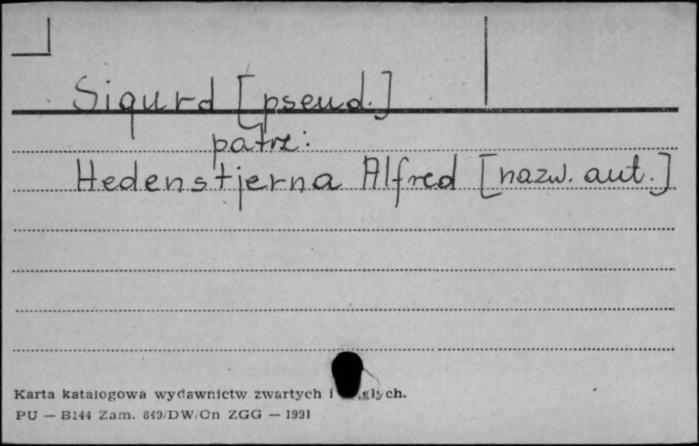 Sigurd [pseud.]
patrz:
Hedenstjerna Alfred [nazw. aut.]
Karta katalogowa wydawnictw zwartych i
PU — B144 Zam. 849/DW/On ZGG — 1991